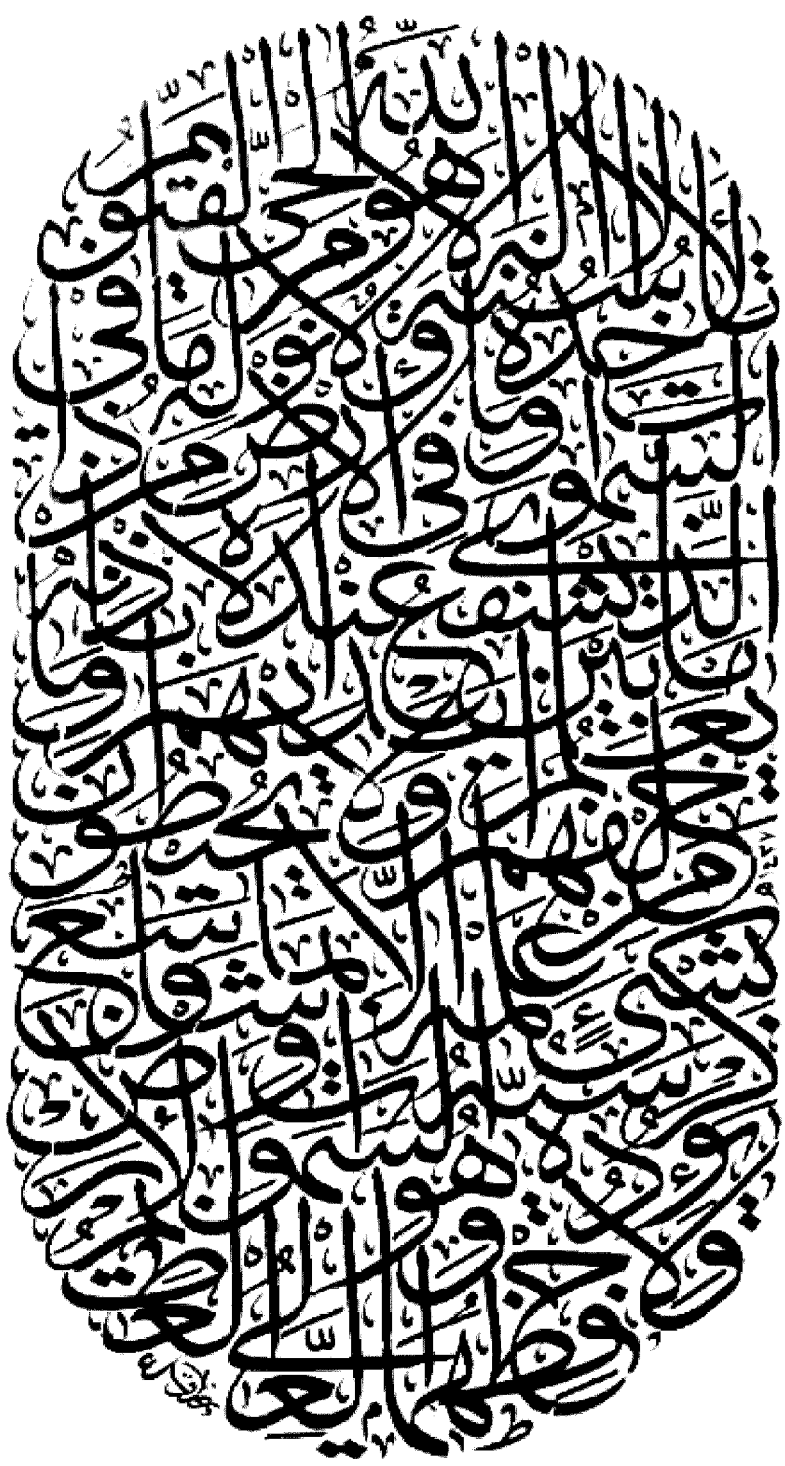 الله لا إله إلا هو الحي القيوم
لا تأخذه سنة ولا نوم له ما في
السموت وما في الأرض من ذا
الذي يشفع عنده إلا بإذنه
يعلم ما بين أيديهم وما
خلفهم ولا يحيطون
بشيء من علمه إلا بما شاء وسع
كرسيه السموت والأرض
ولا يؤده حفظهما
وهو العلي العظيم
١٤٢٧ هـ